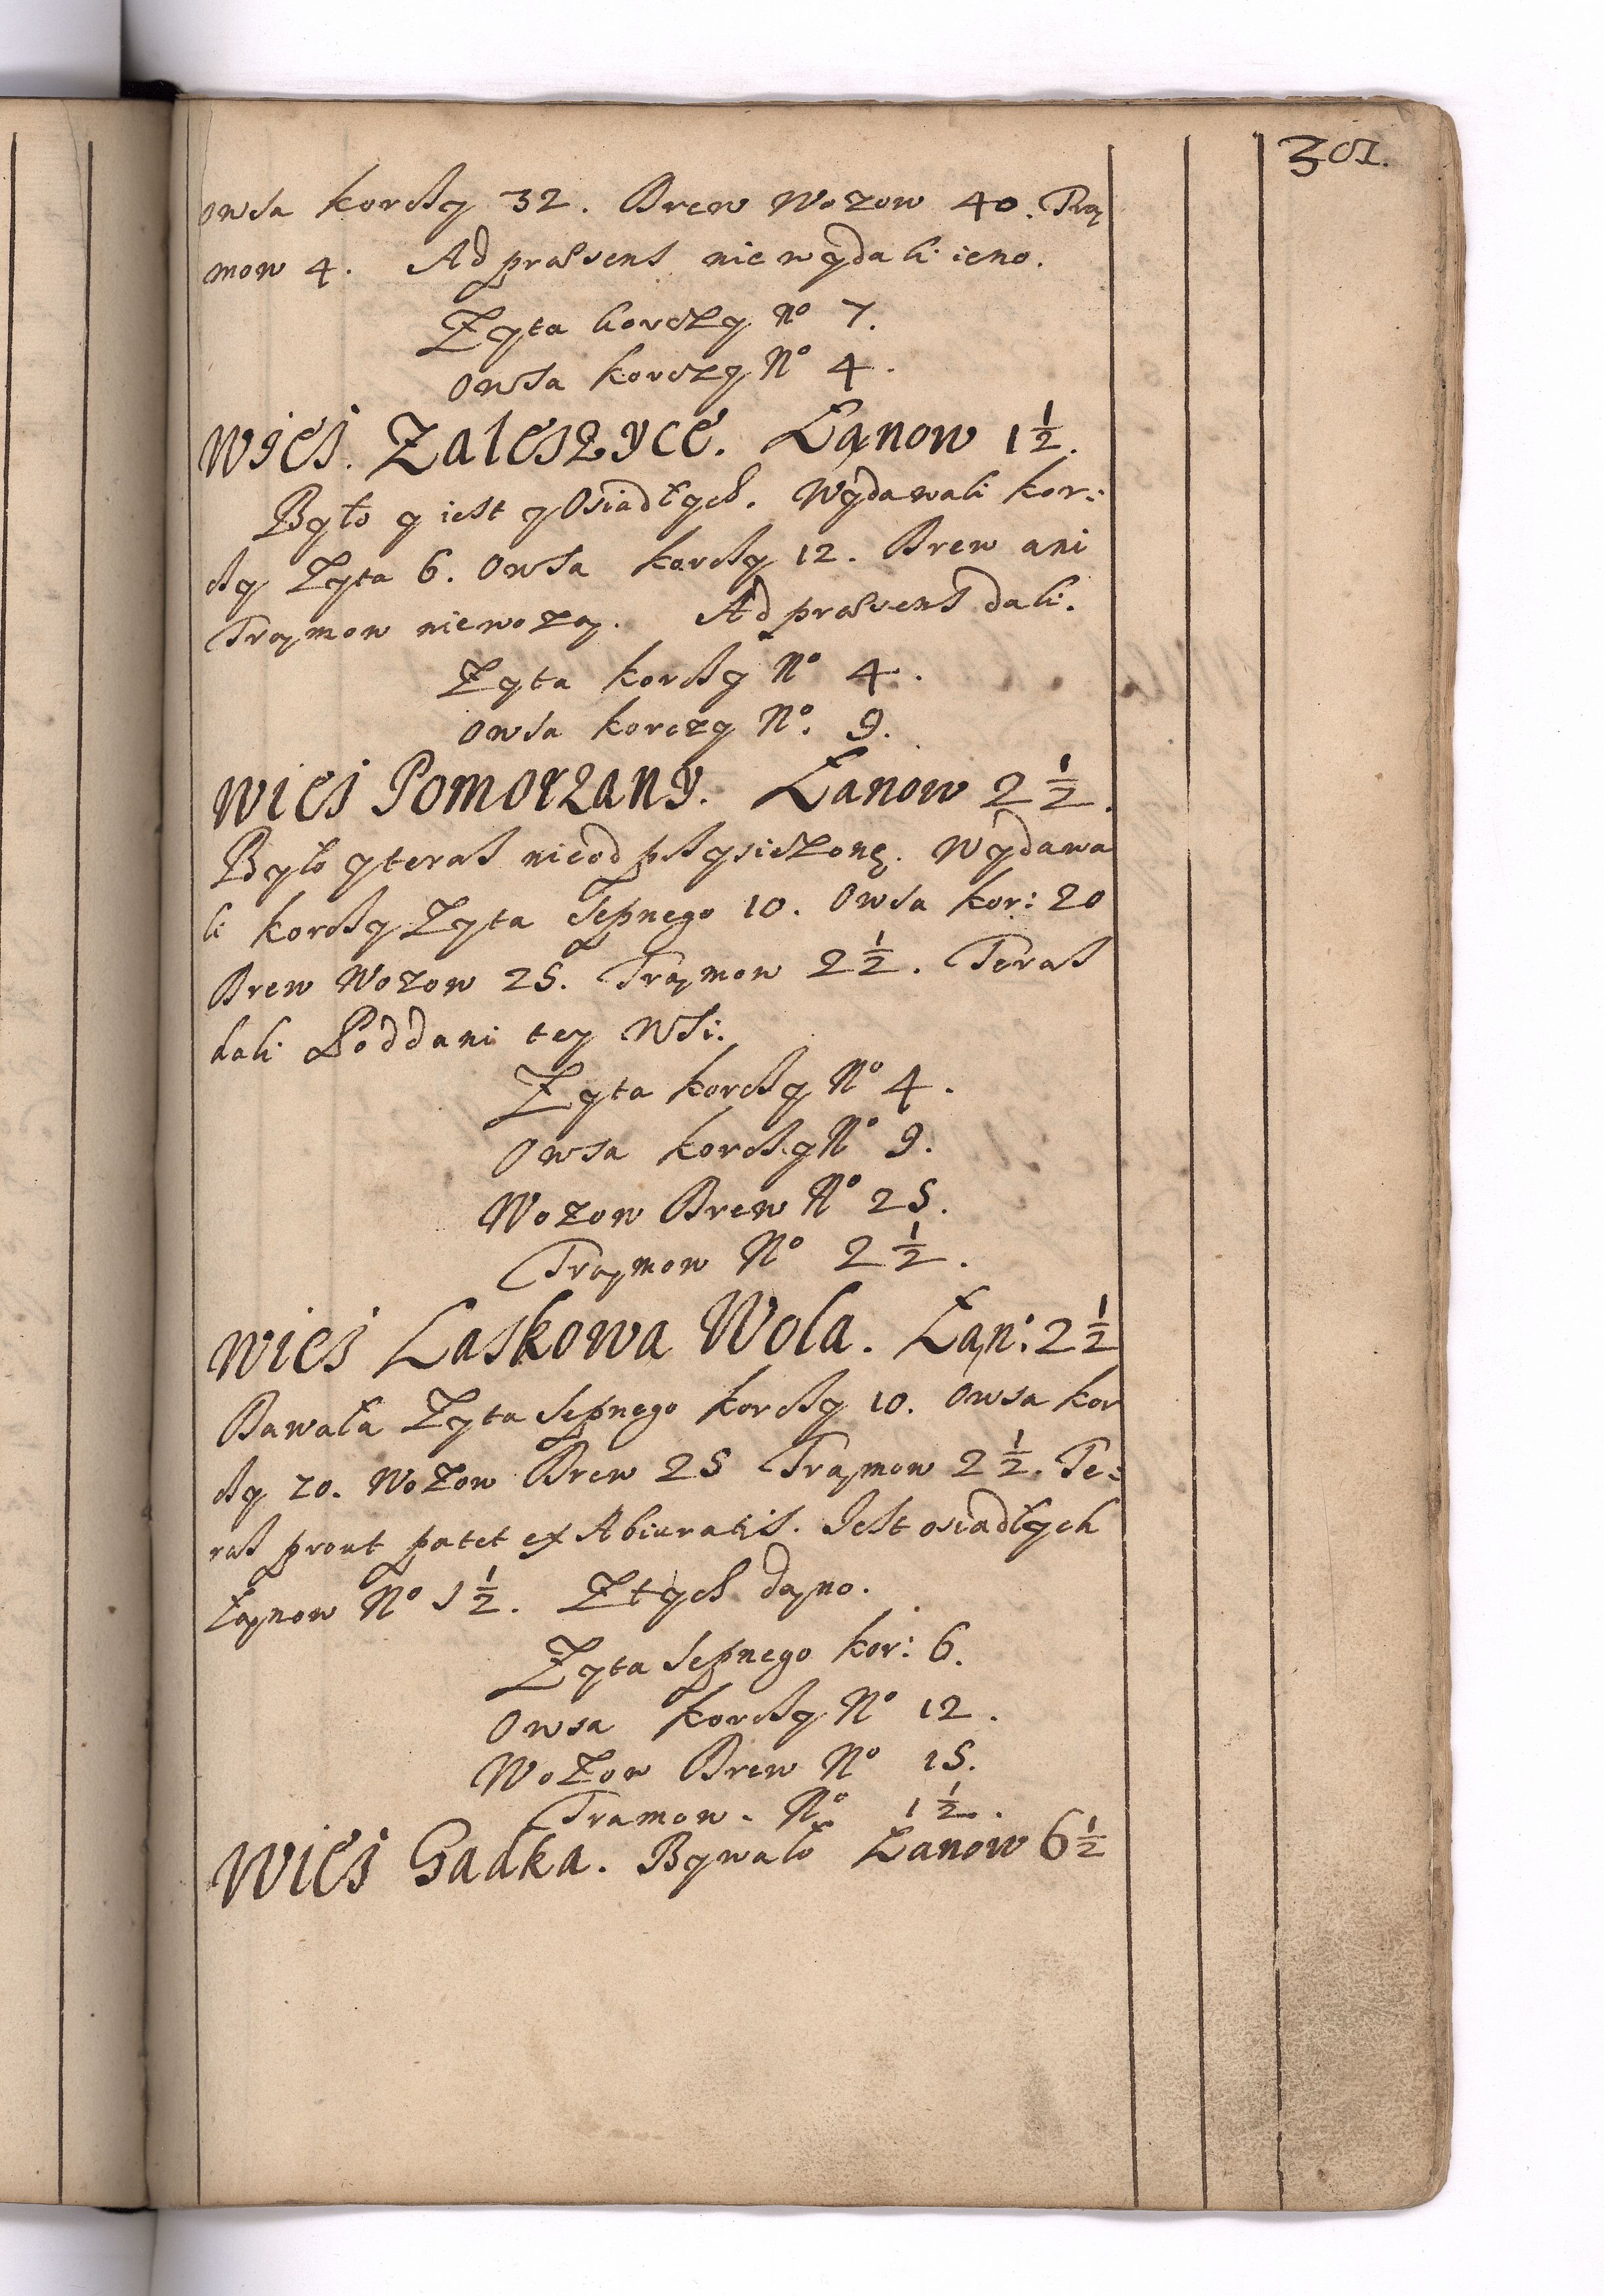 301.
Owsa korcży 32. Drew Wozow 40. Trą
mow 4. Ad præsens nie wydali ieno.
Zyta korczy No 7.
Owsa korczy No 4.
Wieś. Zaleszyce. Łanow 1½.
Było y iest y Osiadłych. Wydawali kor:
cży Zyta 6. Owsa korcży 12. Drew ani
Trąmow niewożą. Ad præsens dali.
Zyta korcży No 4.
Owsa korczy No. 9.
Wieś Pomorzany. Łanow 2½.
Było y teras nieod przysiezonę. Wydawa
li korcży Zyta Sepnego 10. Owsa kor: 20
Drew Wozow 25. Trąmow 2½. Teras
dali Poddani tey Wsi.
Zyta korcży No 4.
Owsa korcży No 9.
Wozow Drew No 25.
Trąmow No 2½.
Wieś Laskowa Wola. Łan: 2½
Dawała Zyta Sepnego korcży 10. Owsa kor
cży 20. Wozow Drew 25 Trąmow 2½. Te:
ras prout patet ex Abiuratis. Iest osiadłych
Łąnow No 1½. Z tych dąno.
Zyta Sepnego kor: 6.
Owsa korcży No 12.
Wozow Drew No 15.
Tramow. No 1½.
Wieś Gadka. Bywało Łanow 6½